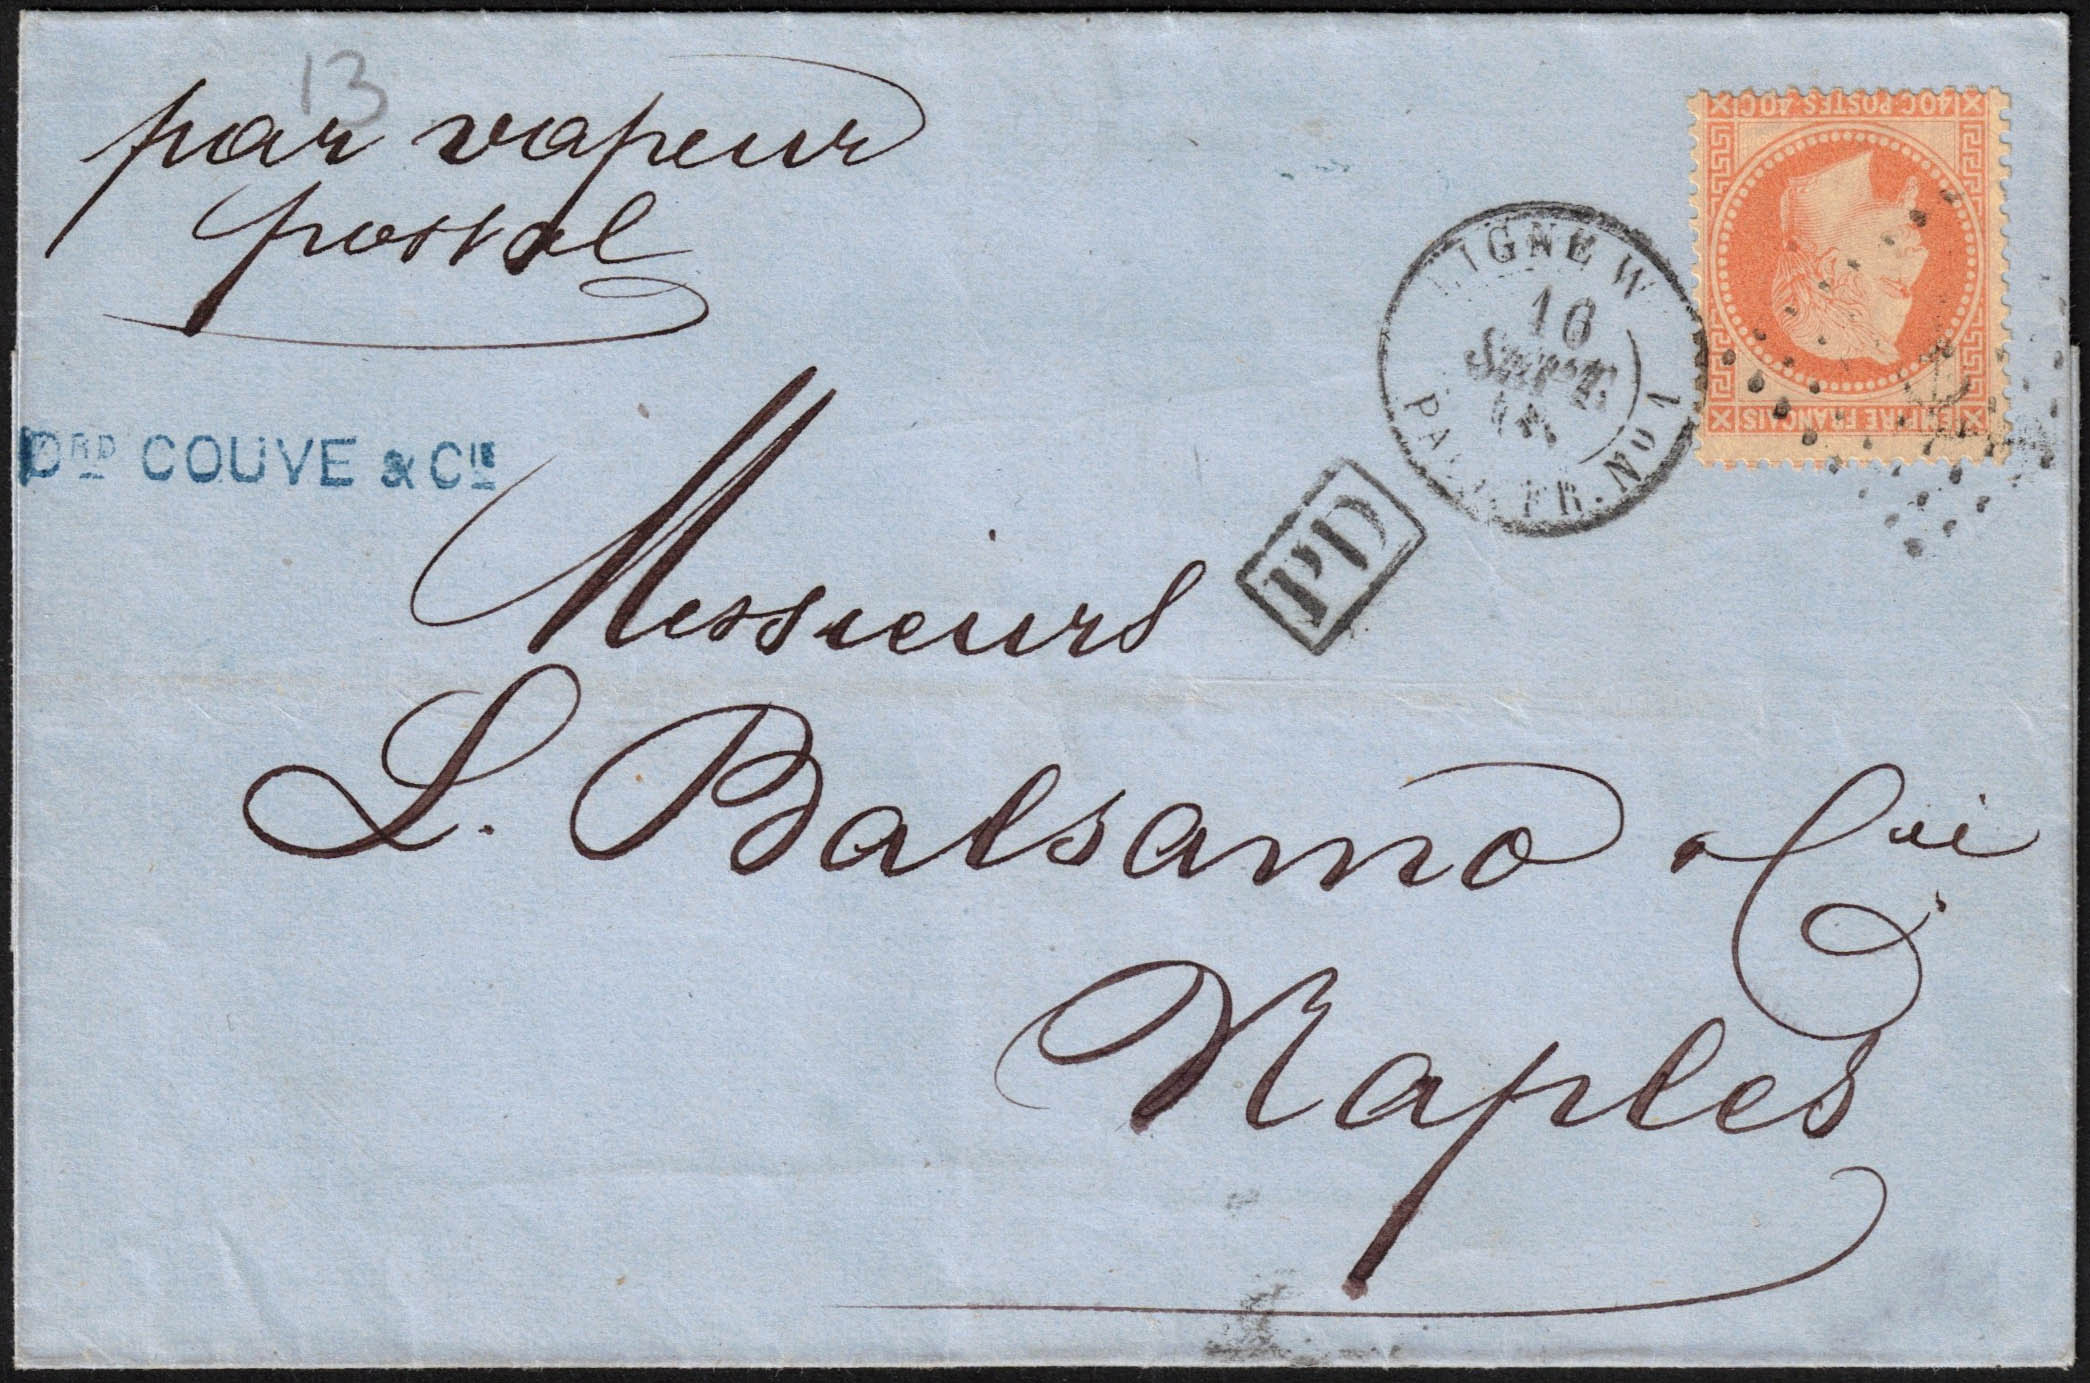 13
par vapeur
postal
40C POSTES 40C
EMPIRE FRANÇAIS
LIGNE W
16
SEPT.
PAQ. FR. No 1
PD
DRD COUVE & CIE
Messieurs
L. Balsamo & Cie
Naples